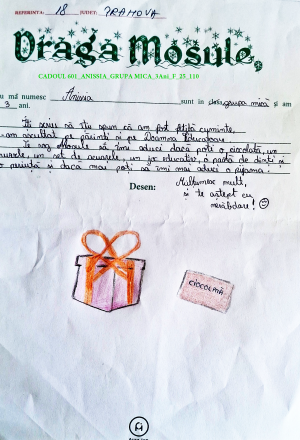 REFERINTA: 18 JUDET: PRAHOVA
Draga Mosule,
CADOUL 601_ANISSIA_GRUPA MICA_3Ani_F_25_110
Eu mă numesc Anissia sunt in clasa grupa mică și am
3 ani.
Îți scriu să îți spun că am fost fetiță cuminte,
am ascultat pe părinți și pe Doamna Educatoare.
Te rog Moșule să îmi aduci dacă poți o ciocolată, un
, un set de acuarele, un joc educativ, o pastă de dinți și
o periuță și dacă mai poți să îmi mai aduci o pijama!
Desen:
Mulțumesc mult,
și te aștept cu
nerăbdare! ☺
CIOCOLATĂ